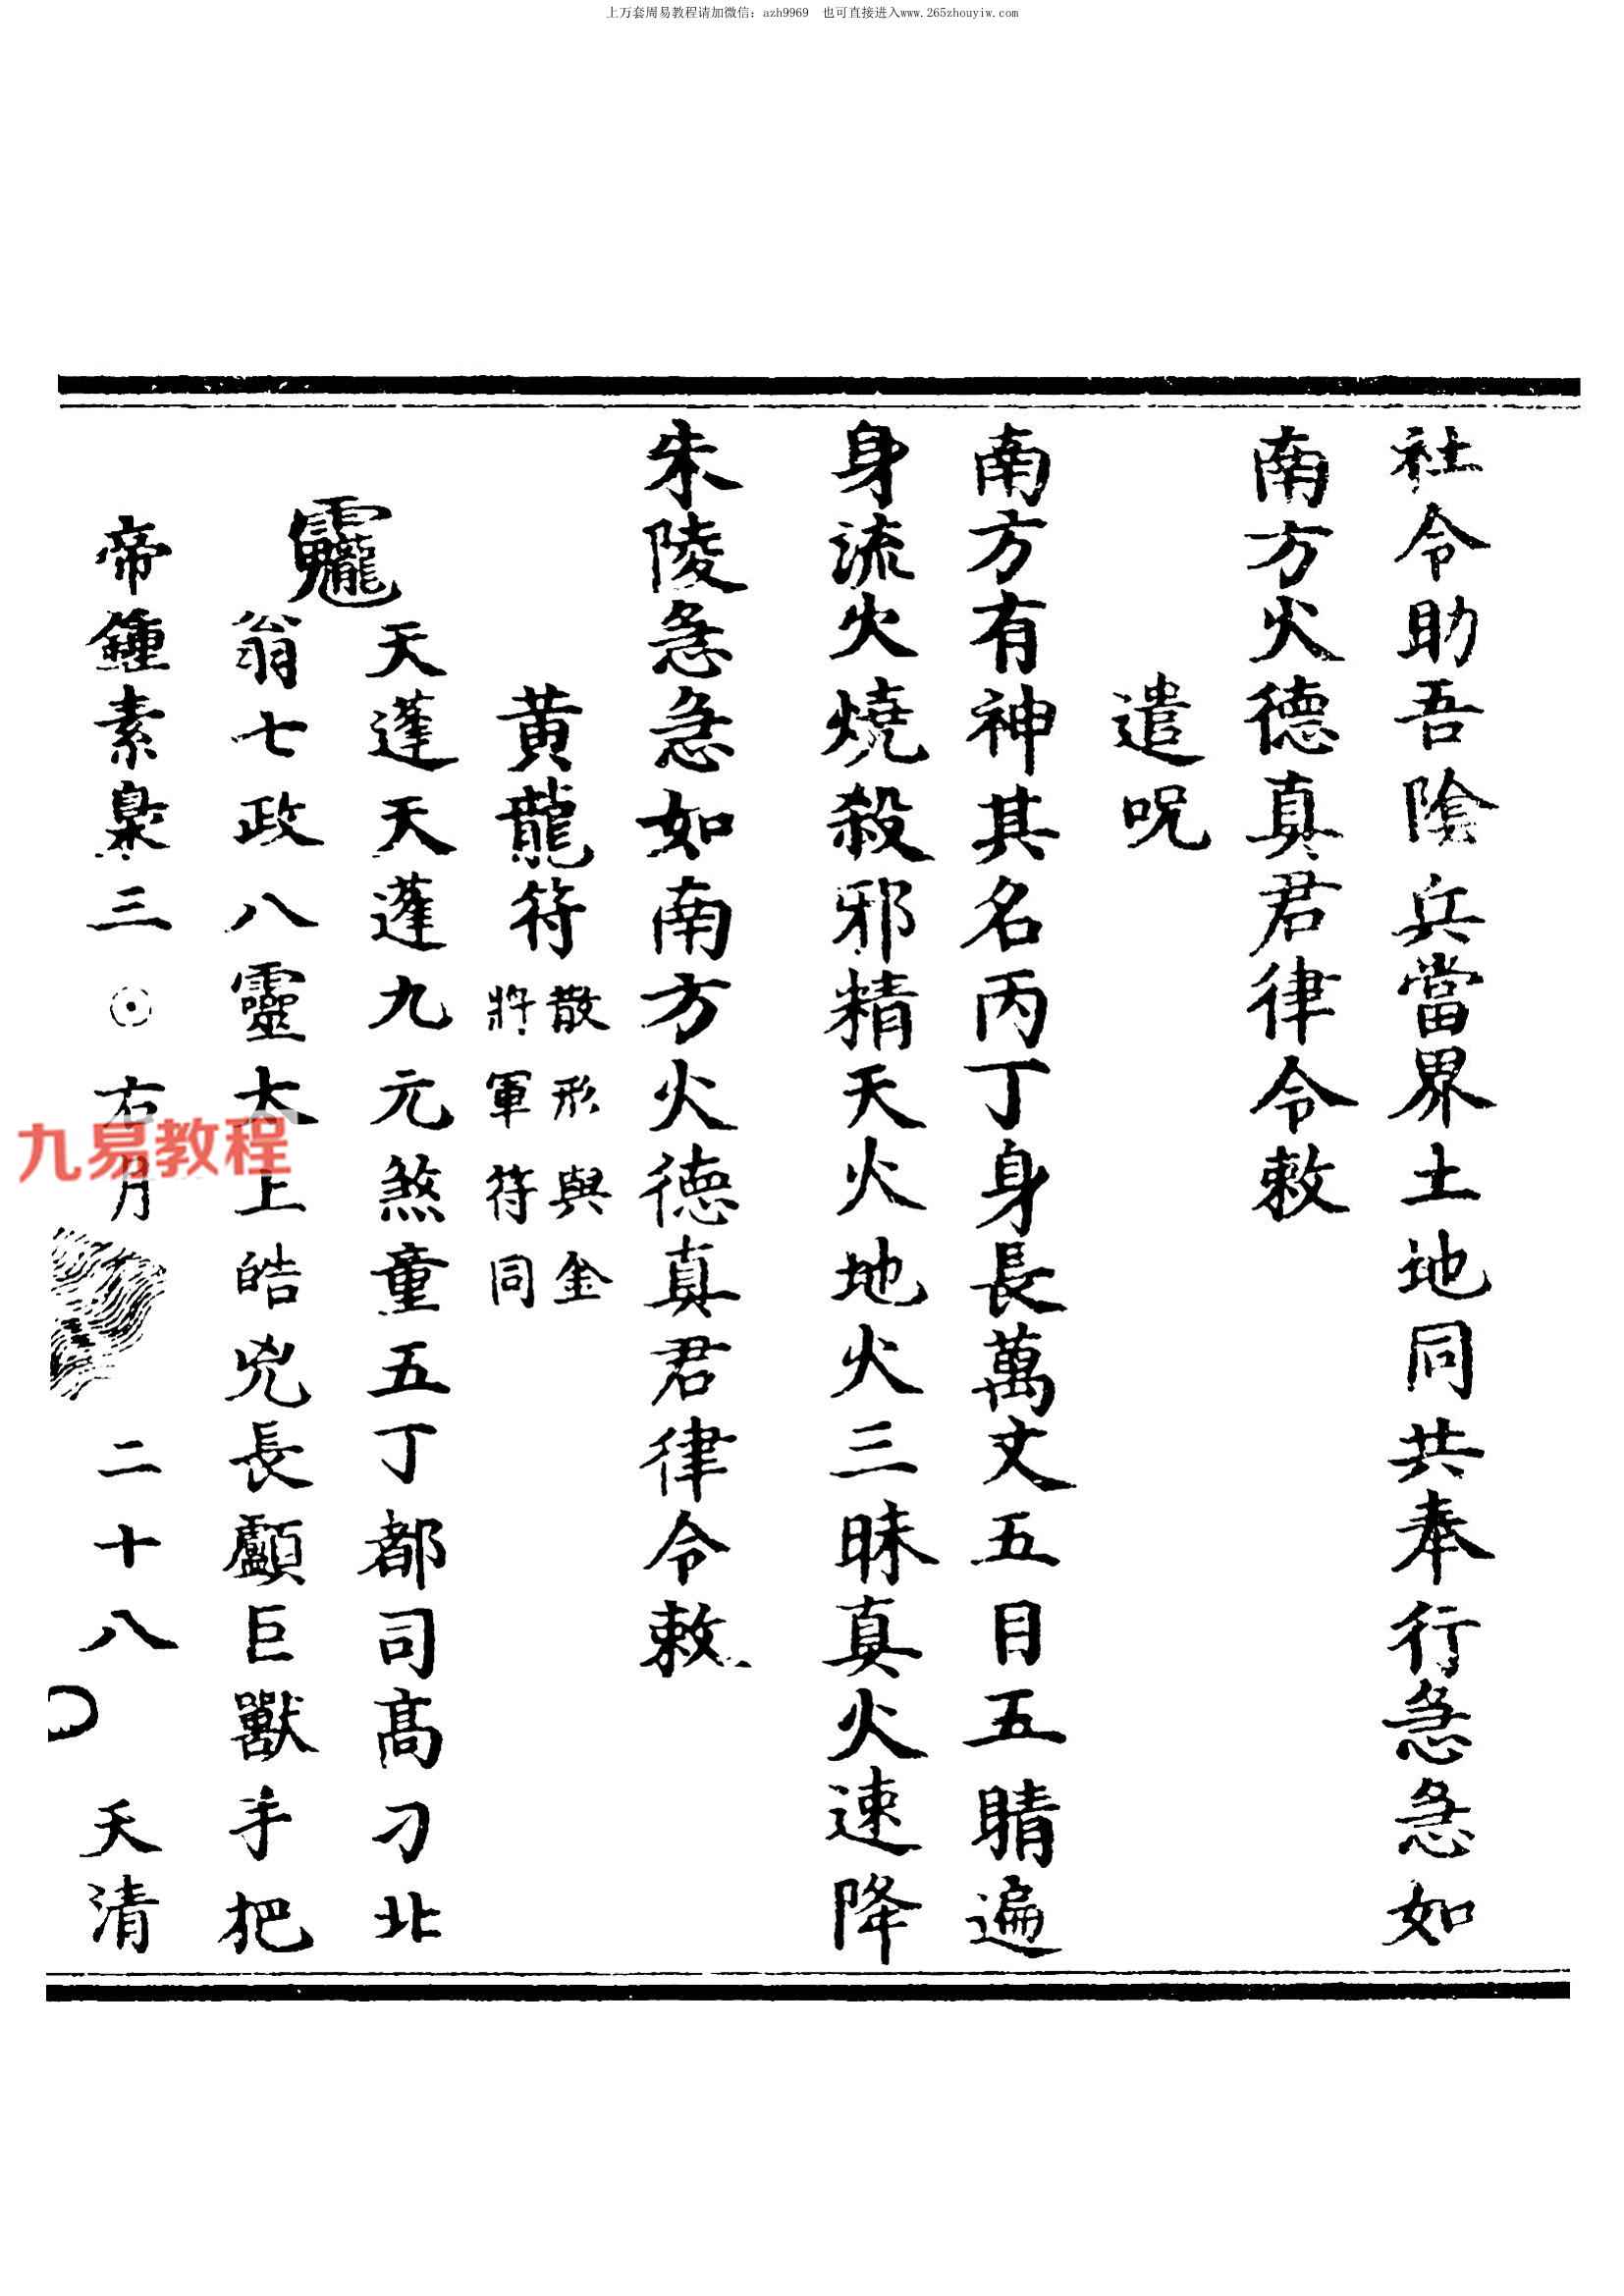 上万套周易教程请加微信：azh9969 也可直接进入www.265zhouyiw.com
社令助吾陰兵當界土地同共奉行急急如
南方火德真君律令敕
遣呪
南方有神其名丙丁身長萬丈五目五睛遍
身流火燒殺邪精天火地火三昧真火速降
朱陵急急如南方火德真君律令敕
黄龍符
散形與金
將軍符同
天蓬天蓬九元煞童五丁都司髙刁北
翁七政八靈太上皓兇長顱巨獸手把
帝鍾素梟三
右月
二十八
天清
九易教程